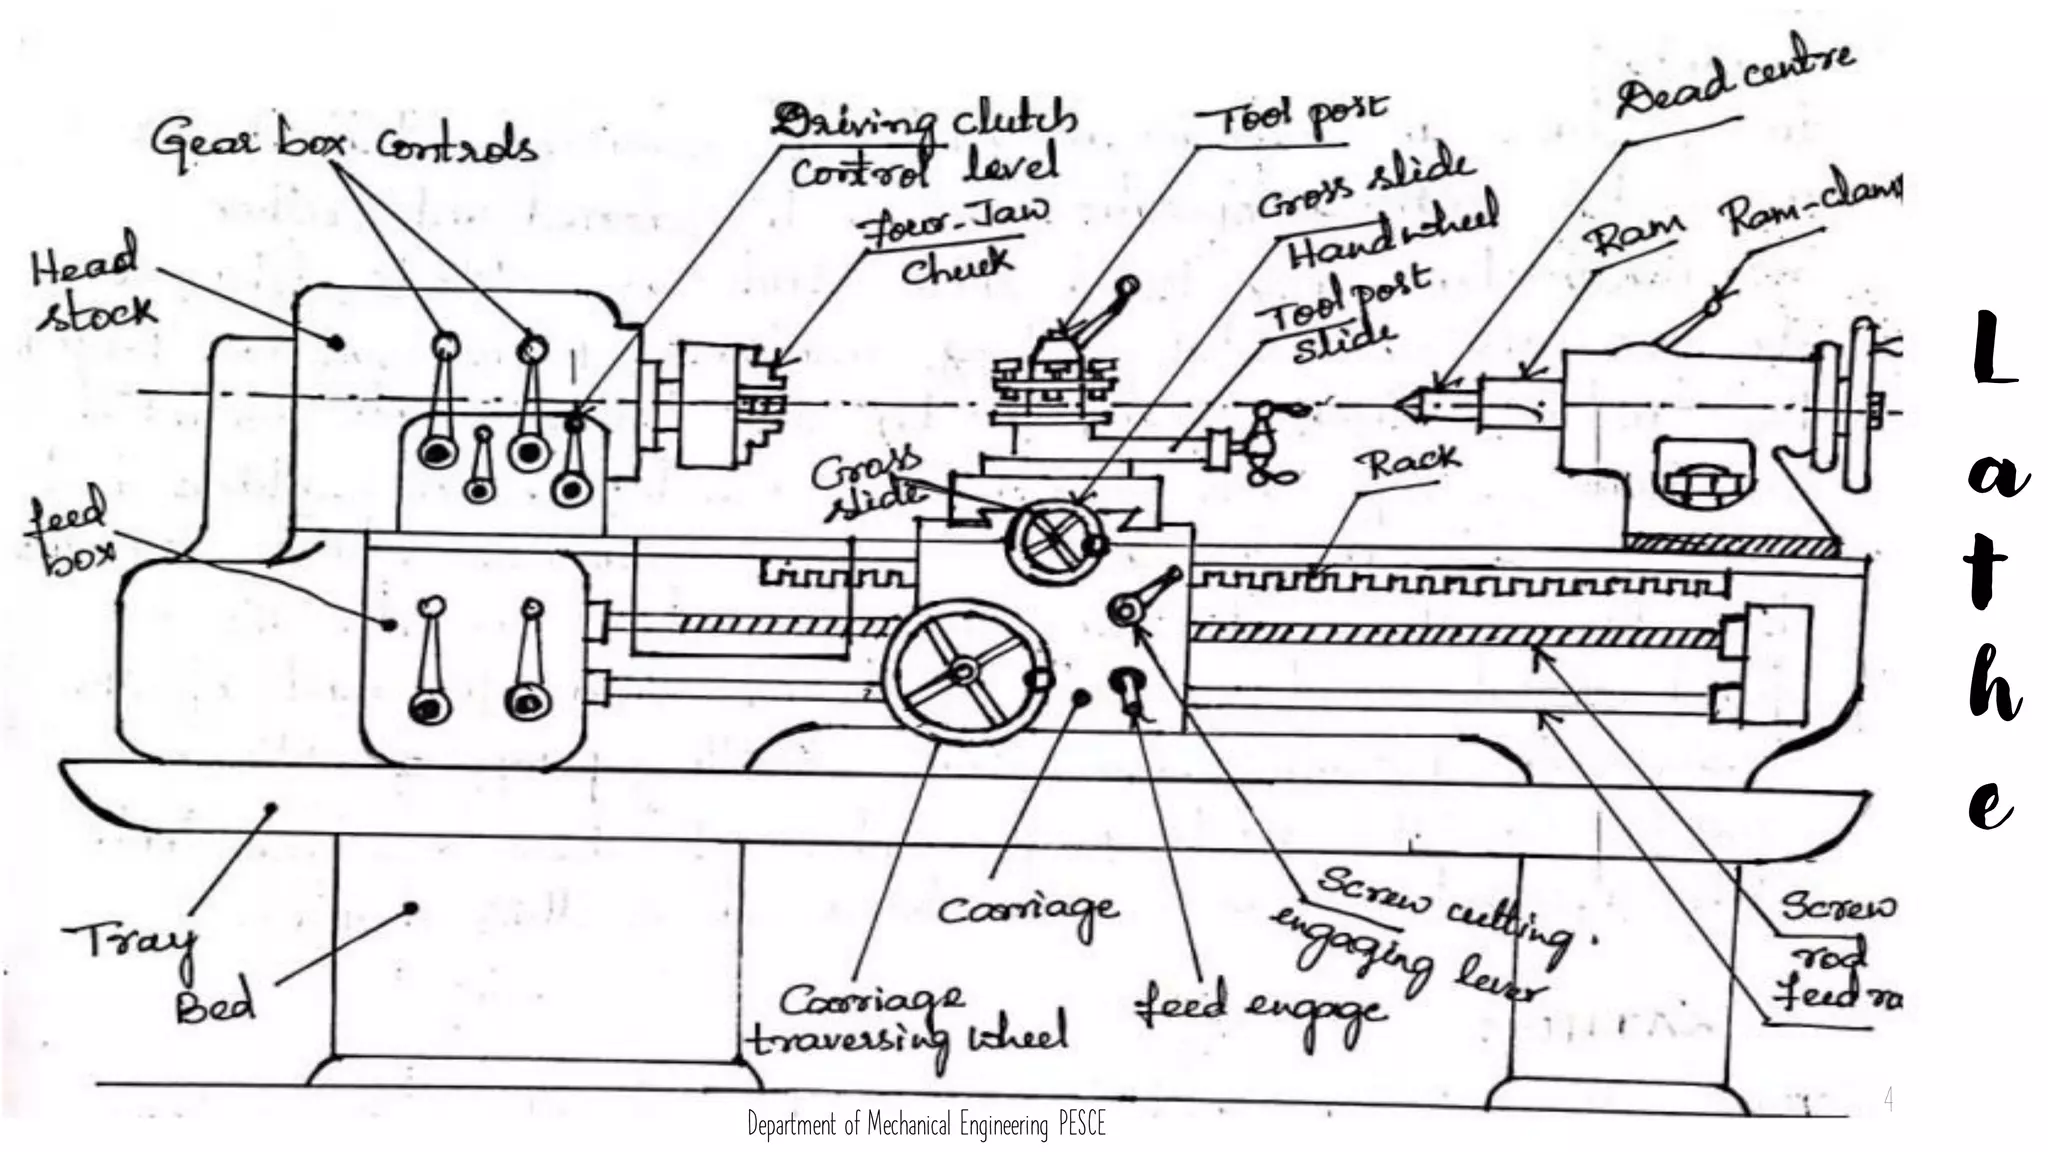 Gear box controls
Driving clutch
control level
Four-Jaw
chuck
Tool post
Cross slide
Hand wheel
Tool post
slide
Dead centre
Ram
Ram-clamp
Head
stock
feed
box
Cross
slide
Rack
Tray
Bed
Carriage
Carriage
traversing wheel
feed engage
Screw cutting.
engaging lever
Screw
rod
feed ro
Lathe
Department of Mechanical Engineering PESCE
4